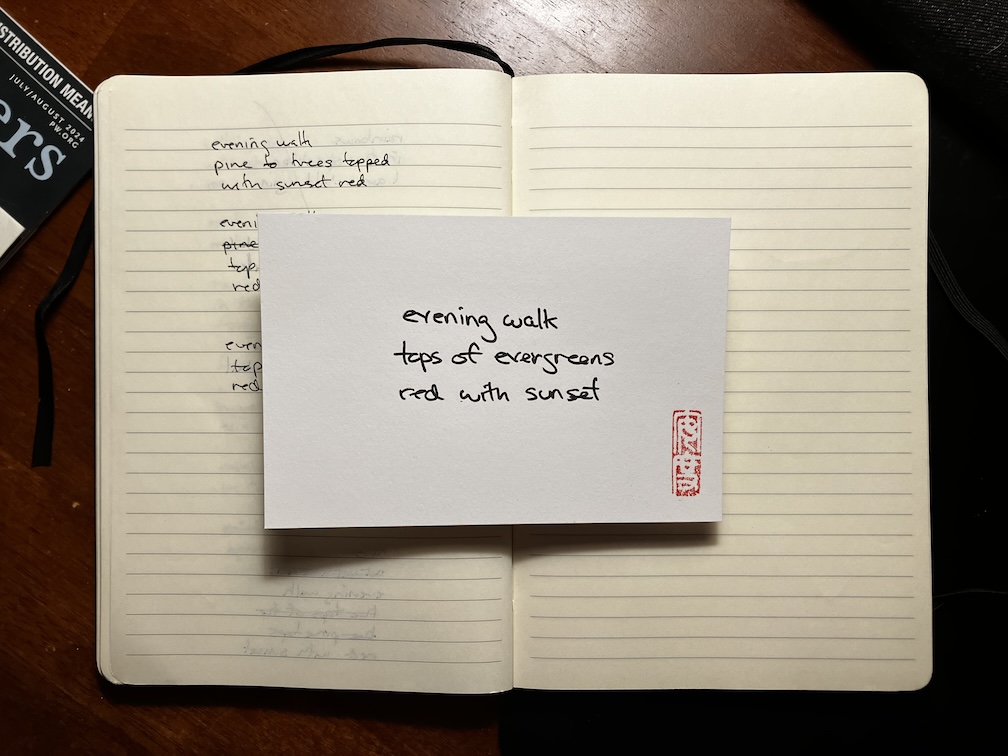 ISTRIBUTION MEAN
JULY/AUGUST 2024
PW.ORG
ers
evening walk
pine to trees topped
with sunset red
eveni
pine
top
red
even
top
red
evening walk
tops of evergreens
red with sunset